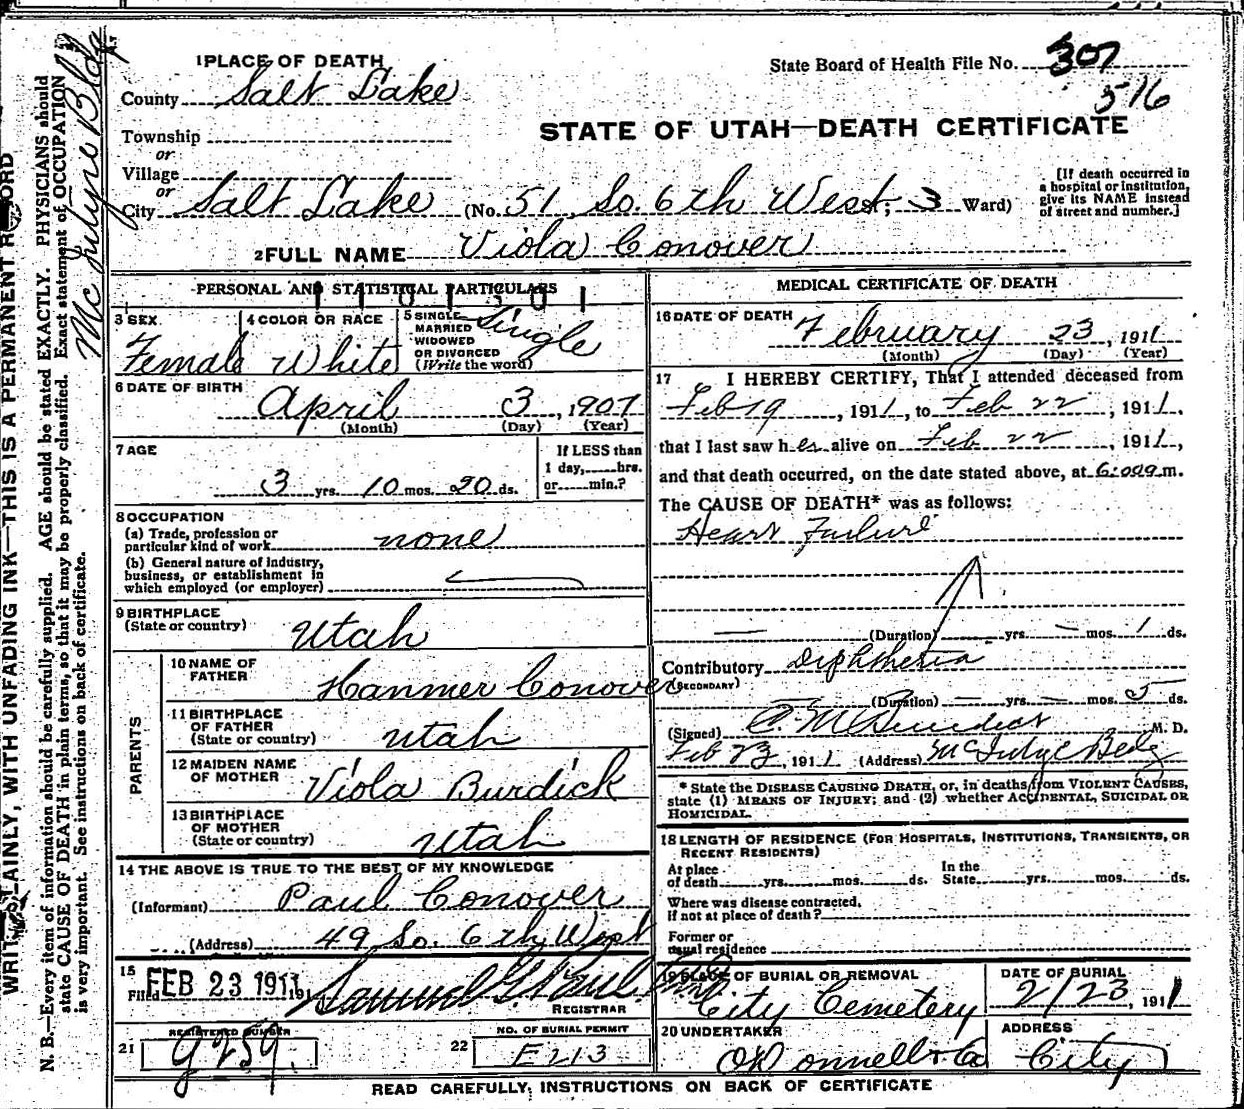 1 PLACE OF DEATH
State Board of Health File No. 307
County Salt Lake
516
STATE OF UTAH—DEATH CERTIFICATE
Township
or
Village
or
City Salt Lake (No. 51 So. 6th West; 3 Ward)
[If death occurred in
a hospital or institution,
give its NAME instead
of street and number.]
2 FULL NAME Viola Conover
PERSONAL AND STATISTICAL PARTICULARS
3 SEX
Female
4 COLOR OR RACE
White
5 SINGLE
MARRIED
WIDOWED
OR DIVORCED
(Write the word)
Single
6 DATE OF BIRTH
April 3, 1907
(Month) (Day) (Year)
7 AGE
3 yrs. 10 mos. 20 ds.
If LESS than
1 day, hrs.
or min.?
8 OCCUPATION
(a) Trade, profession or
particular kind of work none
(b) General nature of industry,
business, or establishment in
which employed (or employer)
9 BIRTHPLACE
(State or country) Utah
PARENTS
10 NAME OF
FATHER Hanmer Conover
11 BIRTHPLACE
OF FATHER
(State or country) Utah
12 MAIDEN NAME
OF MOTHER Viola Burdick
13 BIRTHPLACE
OF MOTHER
(State or country) Utah
14 THE ABOVE IS TRUE TO THE BEST OF MY KNOWLEDGE
(Informant) Paul Conover
(Address) 49 So. 6th West
15
Filed FEB 23 1911 191
Samuel G. Paul
REGISTRAR
21 REGISTERED NUMBER
G259.
22 NO. OF BURIAL PERMIT
E213
MEDICAL CERTIFICATE OF DEATH
16 DATE OF DEATH
February 23, 1911
(Month) (Day) (Year)
17 I HEREBY CERTIFY, That I attended deceased from
Feb 19, 1911, to Feb 22, 1911,
that I last saw her alive on Feb 22, 1911,
and that death occurred, on the date stated above, at 6:00 a m.
The CAUSE OF DEATH* was as follows:
Heart Failure
(Duration) yrs. mos. 1 ds.
Contributory Diphtheria
(SECONDARY)
(Duration) yrs. mos. 5 ds.
(Signed) M. D.
Feb 23, 1911 (Address) McIntyre Bldg
* State the DISEASE CAUSING DEATH, or, in deaths from VIOLENT CAUSES,
state (1) MEANS OF INJURY; and (2) whether ACCIDENTAL, SUICIDAL OR
HOMICIDAL.
18 LENGTH OF RESIDENCE (FOR HOSPITALS, INSTITUTIONS, TRANSIENTS, OR
RECENT RESIDENTS)
At place
of death yrs. mos. ds.
In the
State yrs. mos. ds.
Where was disease contracted,
if not at place of death?
Former or
usual residence
19 PLACE OF BURIAL OR REMOVAL
City Cemetery
DATE OF BURIAL
2/23, 1911
20 UNDERTAKER
O'Donnell & Co
ADDRESS
City
READ CAREFULLY, INSTRUCTIONS ON BACK OF CERTIFICATE
WRITE PLAINLY, WITH UNFADING INK—THIS IS A PERMANENT RECORD
N. B.—Every item of information should be carefully supplied. AGE should be stated EXACTLY. PHYSICIANS should
state CAUSE OF DEATH in plain terms, so that it may be properly classified. Exact statement of OCCUPATION
is very important. See instructions on back of certificate.
McIntyre Bldg